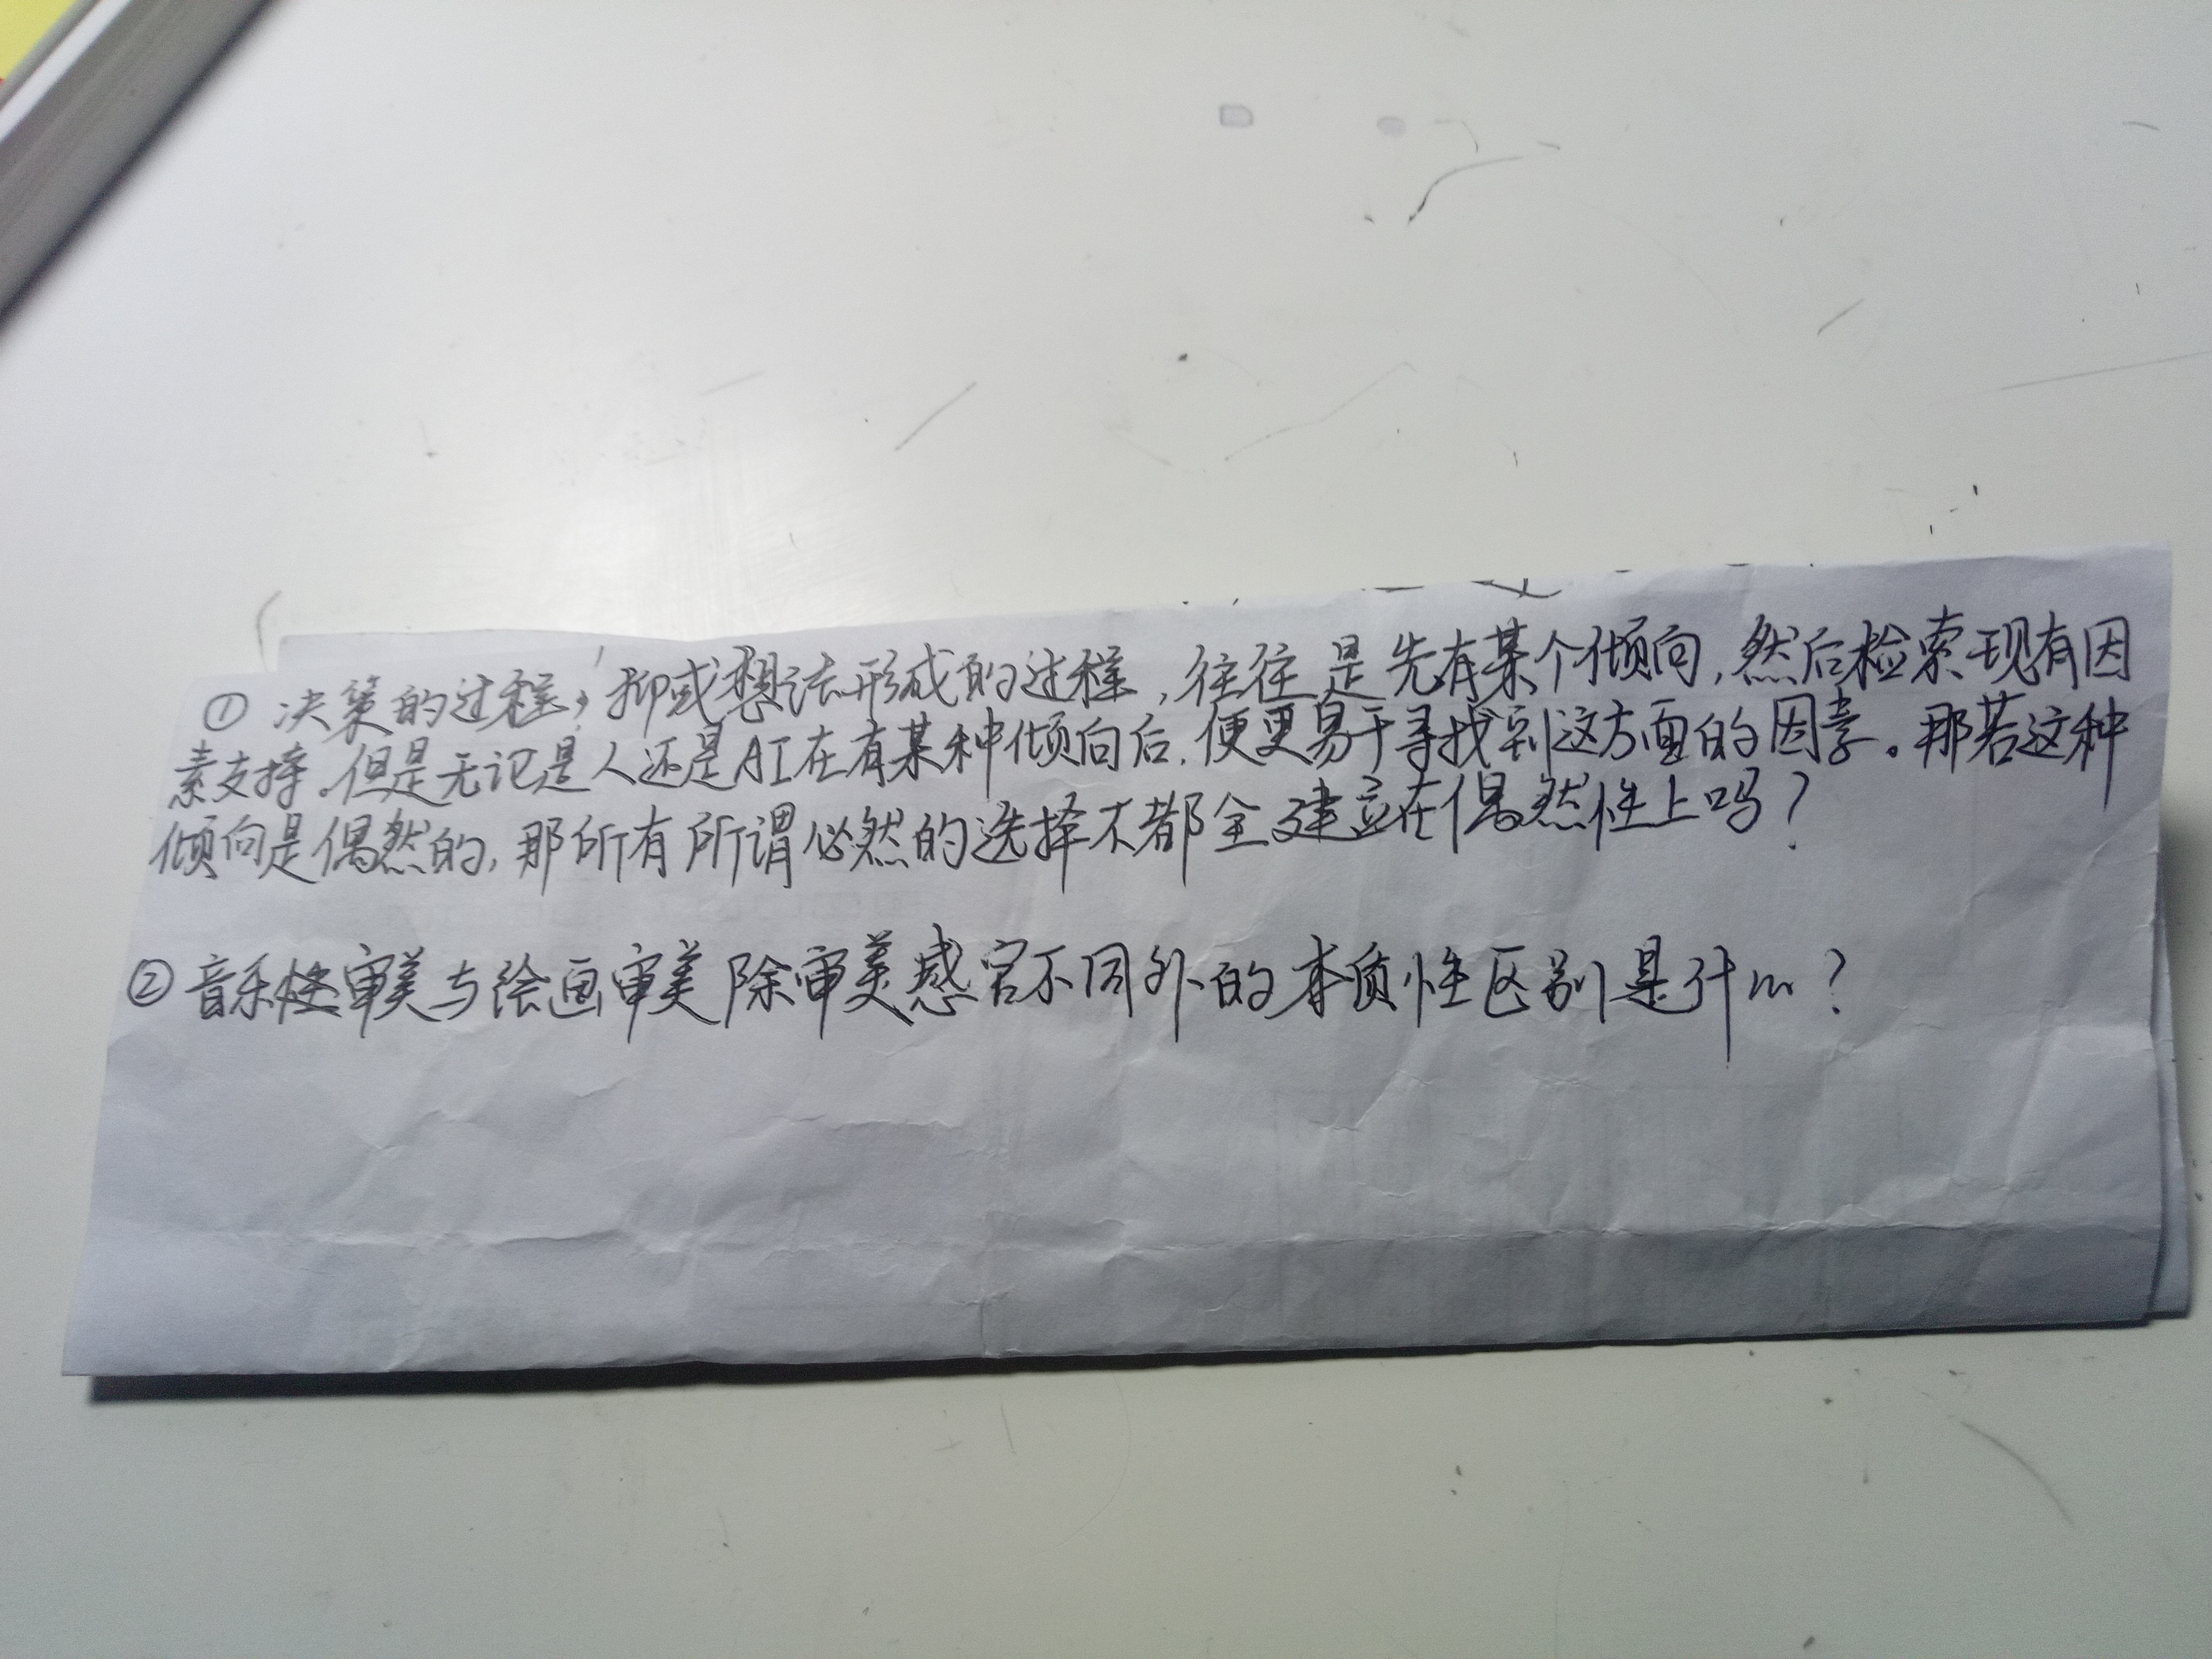 ① 决策的过程，抑或想法形成的过程，往往是先有某个倾向，然后检索现有因
素支持。但是无论是人还是AI在有某种倾向后，便更易于寻找到这方面的因素。那若这种
倾向是偶然的，那所有所谓必然的选择不都全建立在偶然性上吗？
② 音乐审美与绘画审美除审美感官不同外的本质性区别是什么？